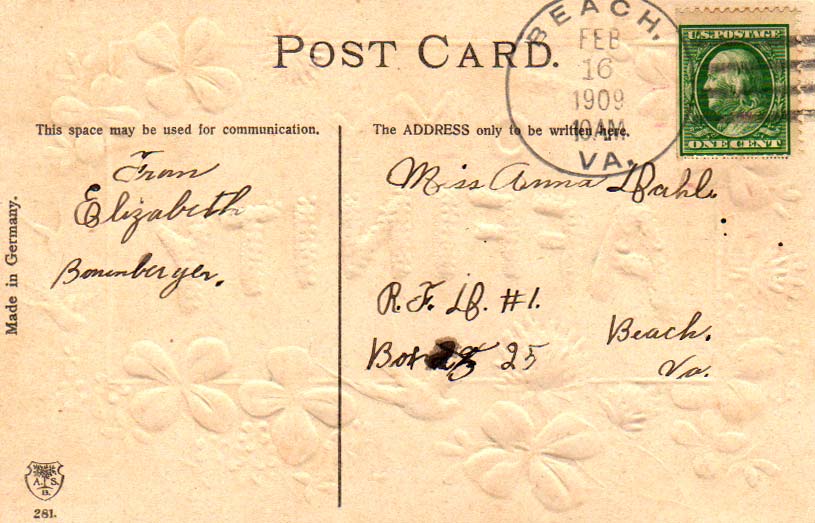 POST CARD.
BEACH,
FEB
16
1909
10AM
VA.
U.S. POSTAGE
ONE CENT
This space may be used for communication.
The ADDRESS only to be written here.
From
Elizabeth
Bonenberger.
Miss Anna Dahl.
R.F.D. #1.
Box 25
Beach.
Va.
Made in Germany.
A. S.
B.
281.